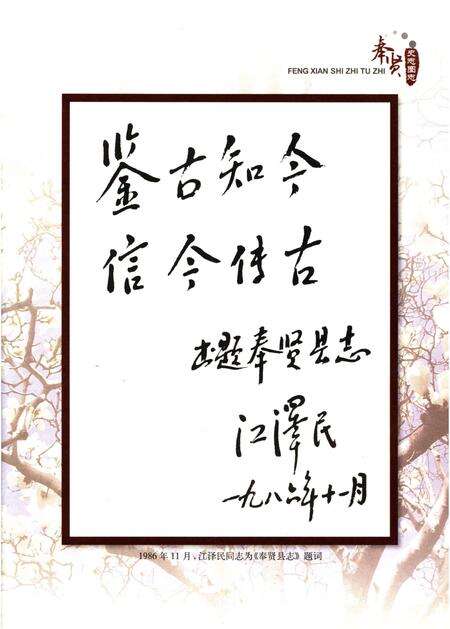 奉贤
史志图志
FENG XIAN SHI ZHI TU ZHI
鉴古知今
信今传古
书题奉贤县志
江泽民
一九八六年十一月
1986 年 11 月、江泽民同志为《奉贤县志》题词